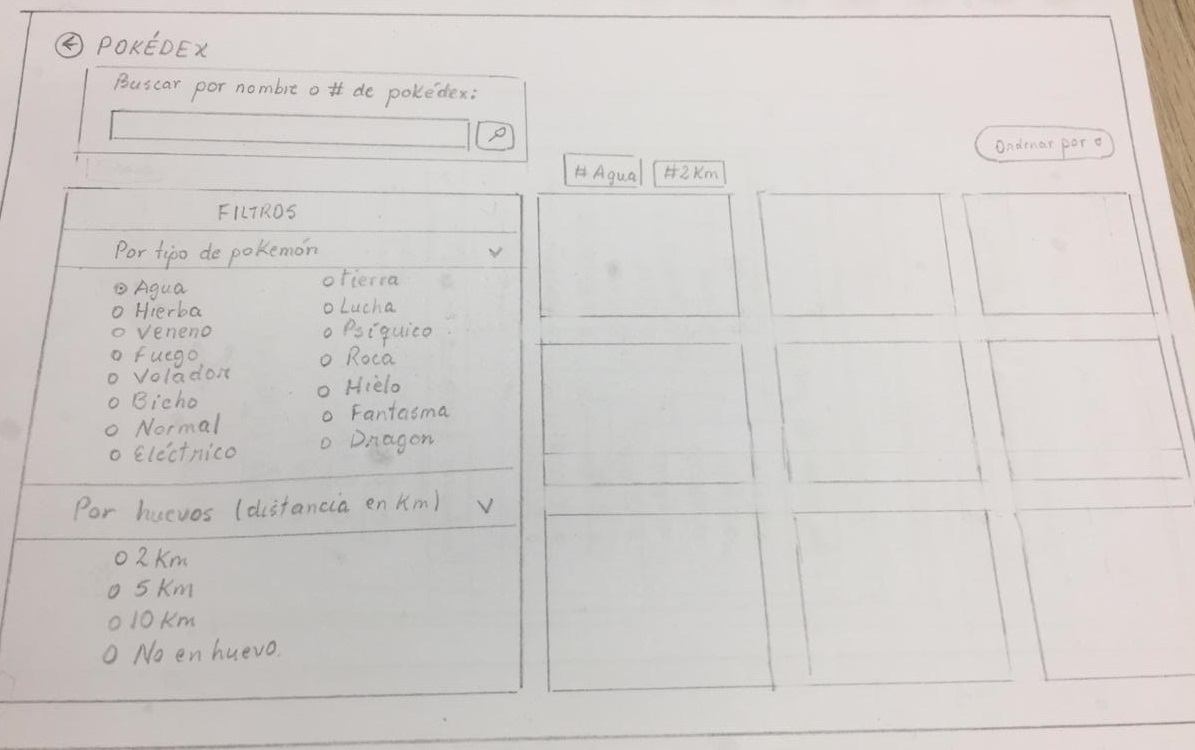 POKÉDEX
Buscar por nombre o # de pokédex:
Ordenar por
#Agua #2Km
FILTROS
Por tipo de pokemón
Agua
Hierba
Veneno
Fuego
Volador
Bicho
Normal
Eléctrico
tierra
Lucha
Psíquico
Roca
Hielo
Fantasma
Dragon
Por huevos (distancia en Km)
2 Km
5 Km
10 Km
No en huevo.